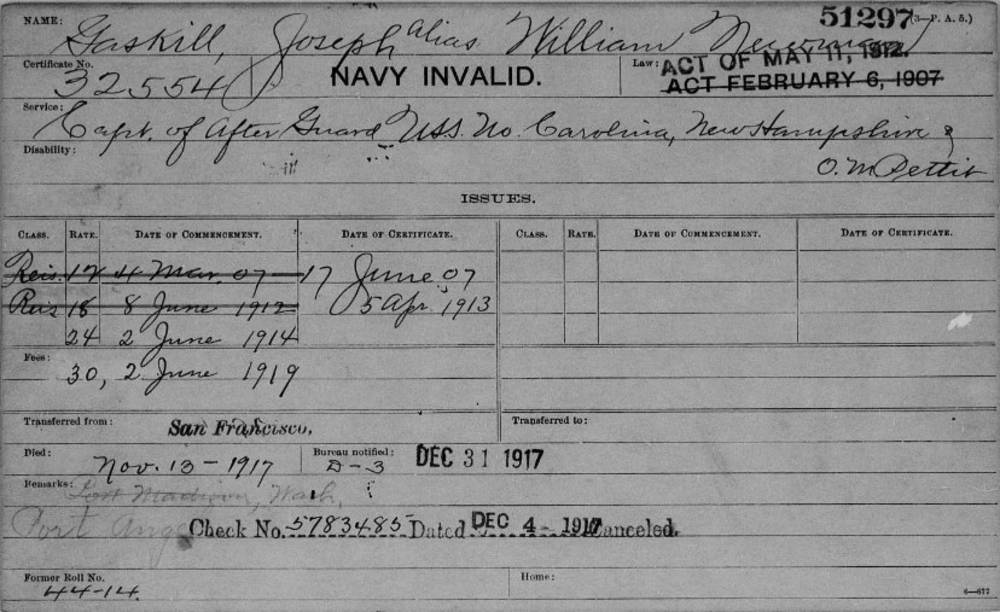 NAME: 51297 (3—P. A. 5.)
Gaskill, Joseph alias William Newman
Certificate No. 32554 NAVY INVALID. Law: ACT OF MAY 11, 1912.
ACT FEBRUARY 6, 1907
Service: Capt. of After Guard U.S.S. No. Carolina, New Hampshire &
Disability: O. M. Pettit
ISSUES.
CLASS. RATE. DATE OF COMMENCEMENT. DATE OF CERTIFICATE. CLASS. RATE. DATE OF COMMENCEMENT. DATE OF CERTIFICATE.
Reis. 12 4 Mar. 07 17 June 07
Reis 18 8 June 1912 5 Apr. 1913
24 2 June 1914
Fees: 30, 2 June 1919
Transferred from: San Francisco. Transferred to:
Died: Nov. 13-1917 Bureau notified: D-3 DEC 31 1917
Remarks: Port Madison, Wash.
Port Check No. 5783485 Dated DEC 4 1917 Canceled.
Former Roll No. 44-14. Home:
6—677